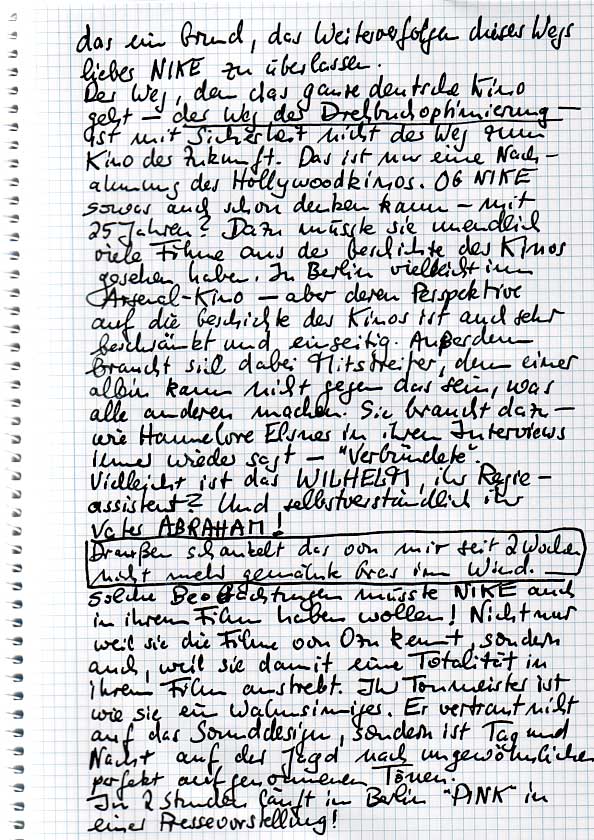 das ein Grund, das Weiterverfolgen dieses Wegs
lieber NIKE zu überlassen.
Der Weg, den das ganze deutsche Kino
geht – der Weg der Drehbuchoptimierung –
ist mit Sicherheit nicht der Weg zum
Kino der Zukunft. Das ist nur eine Nach-
ahmung des Hollywoodkinos. OB NIKE
sowas auch schon denken kann – mit
25 Jahren? Dazu müsste sie unendlich
viele Filme aus der Geschichte des Kinos
gesehen haben. In Berlin vielleicht im
Arsenal-Kino – aber deren Perspektive
auf die Geschichte des Kinos ist auch sehr
beschränkt und einseitig. Außerdem
braucht sie dabei Mitstreiter, denn einer
allein kann nicht gegen das sein, was
alle anderen machen. Sie braucht dazu –
wie Hannelore Elsner in ihren Interviews
immer wieder sagt – "Verbündete".
Vielleicht ist das WILHELM, ihr Regie-
assistent? Und selbstverständlich ihr
Vater ABRAHAM!
Draußen schaukelt das von mir seit 2 Wochen
nicht mehr gemähte Gras im Wind. –
Solche Beobachtungen müsste NIKE auch
in ihrem Film haben wollen! Nicht nur
weil sie die Filme von Ozu kennt, sondern
auch, weil sie damit eine Totalität in
ihrem Film anstrebt. Ihr Tonmeister ist
wie sie ein Wahnsinniger. Er vertraut nicht
auf das Sounddesign, sondern ist Tag und
Nacht auf der Jagd nach ungewöhnlichen
perfekt aufgenommenen Tönen.
In 2 Stunden läuft in Berlin "PINK" in
einer Pressevorstellung!